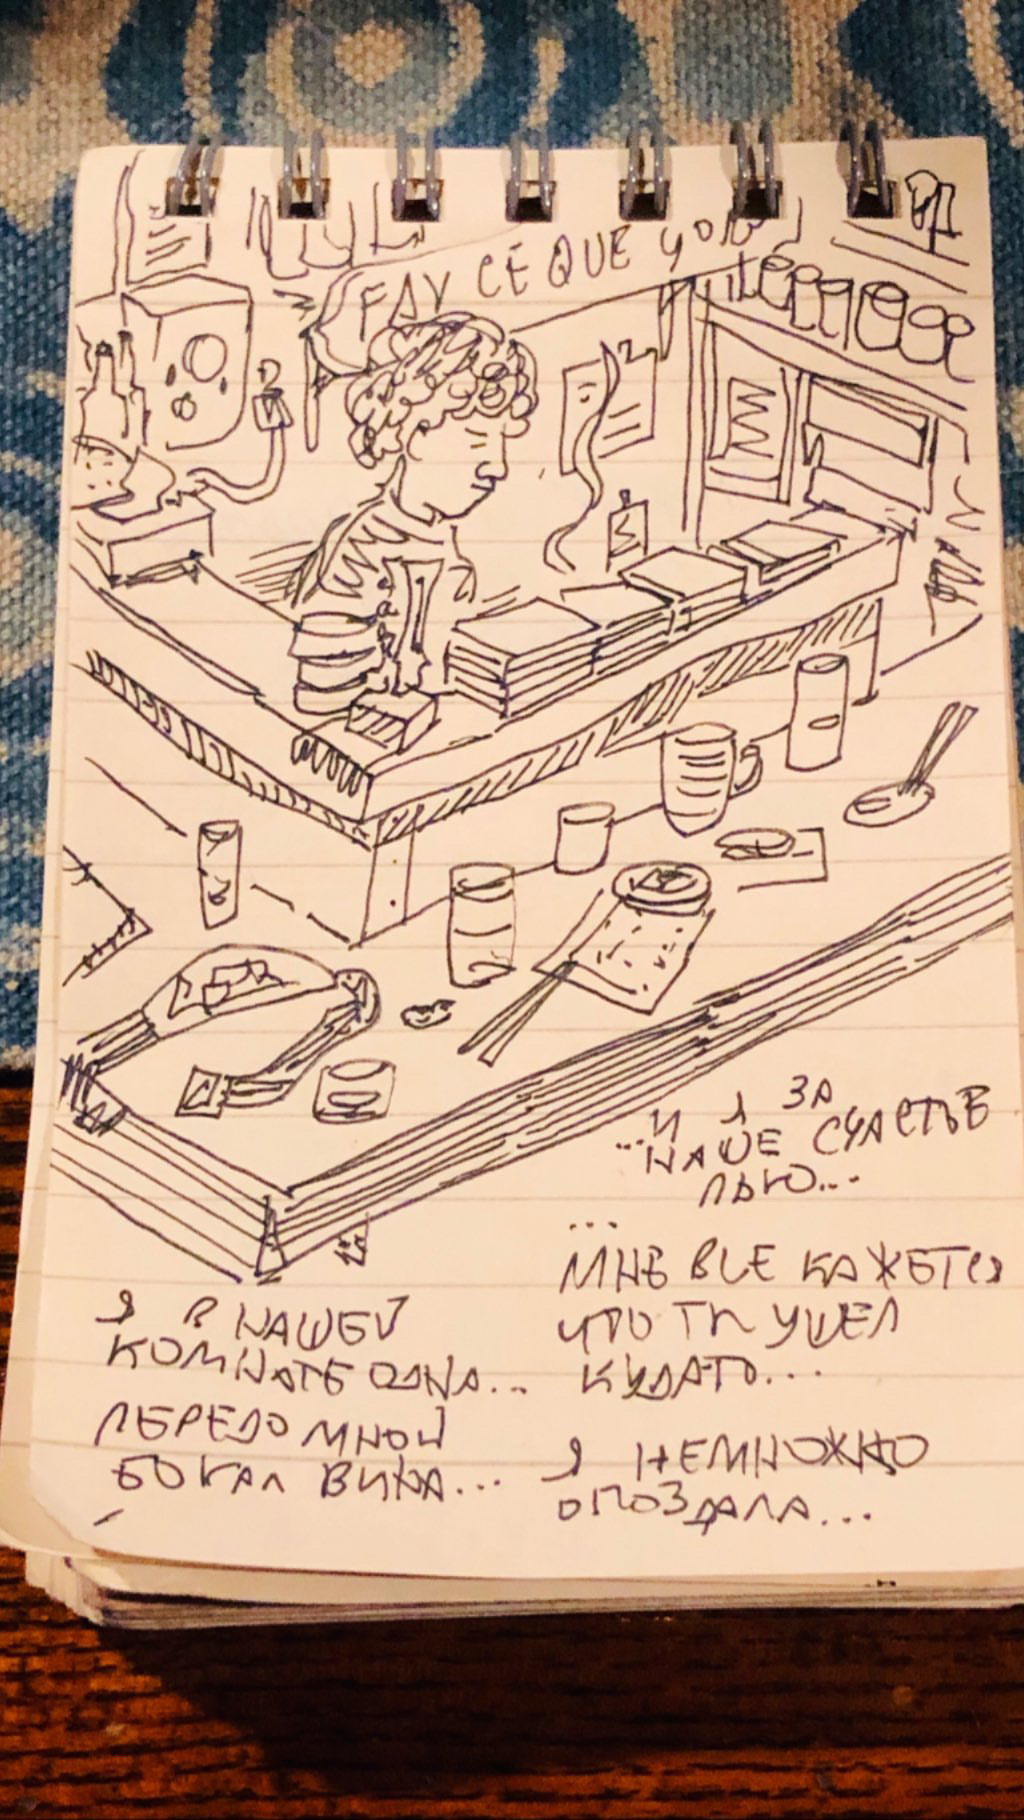 FAY CE QUE
...И Я ЗА
НАШЕ СЧАСТЬЕ
ПЬЮ...
...
МНЕ ВСЕ КАЖЕТСЯ
ЧТО ТЫ УШЕЛ
КУДАТО...
Я НЕМНОЖКО
ОПОЗДАЛА...
Я В НАШЕЙ
КОМНАТЕ ОДНА...
ПЕРЕДО МНОЙ
БОКАЛ ВИНА...